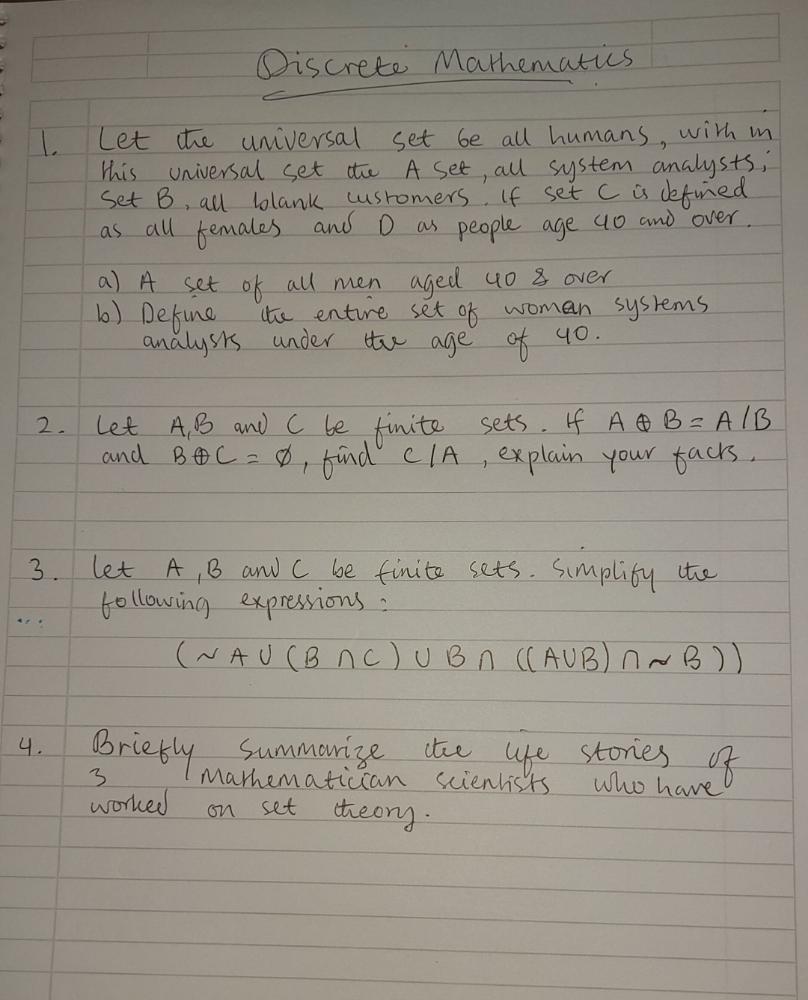 Discrete Mathematics
1. Let the universal set be all humans, with in
this universal set the A set, all system analysts;
Set B, all blank customers. If set C is defined
as all females and D as people age 40 and over.
a) A set of all men aged 40 & over
b) Define the entire set of woman systems
analysts under the age of 40.
2. Let A,B and C be finite sets. If A ⊕ B = A/B
and B⊕C = ∅, find C/A, explain your facts.
3. Let A, B and C be finite sets. Simplify the
following expressions:
(~A∪(B∩C)∪B∩((A∪B)∩~B))
4. Briefly summarize the life stories of
3 mathematician scientists who have
worked on set theory.